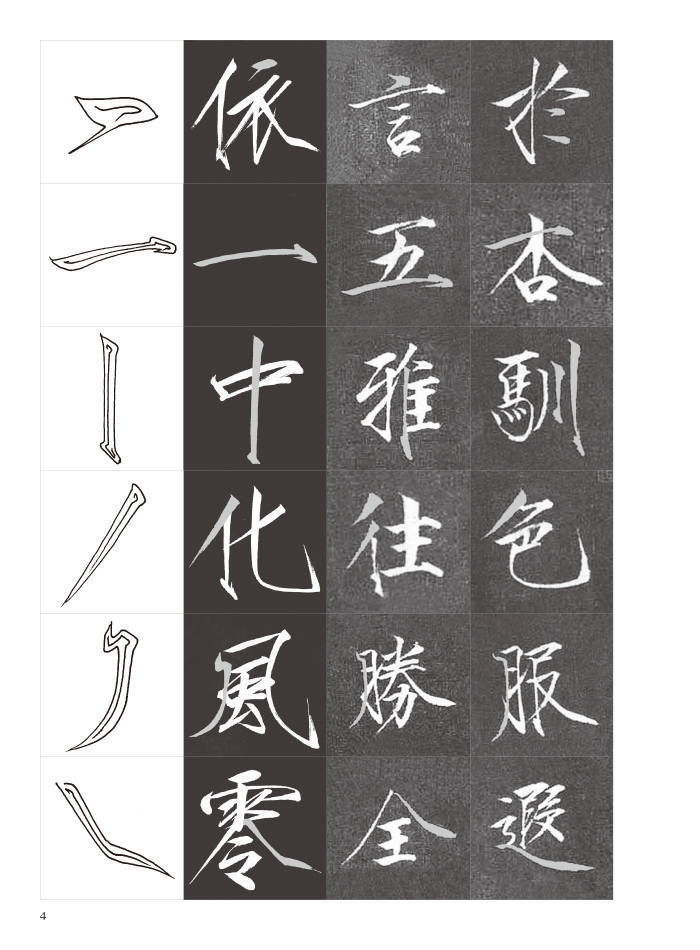 依 言 於
一 五 杏
中 雅 馴
化 往 色
風 勝 服
零 全 遐
4